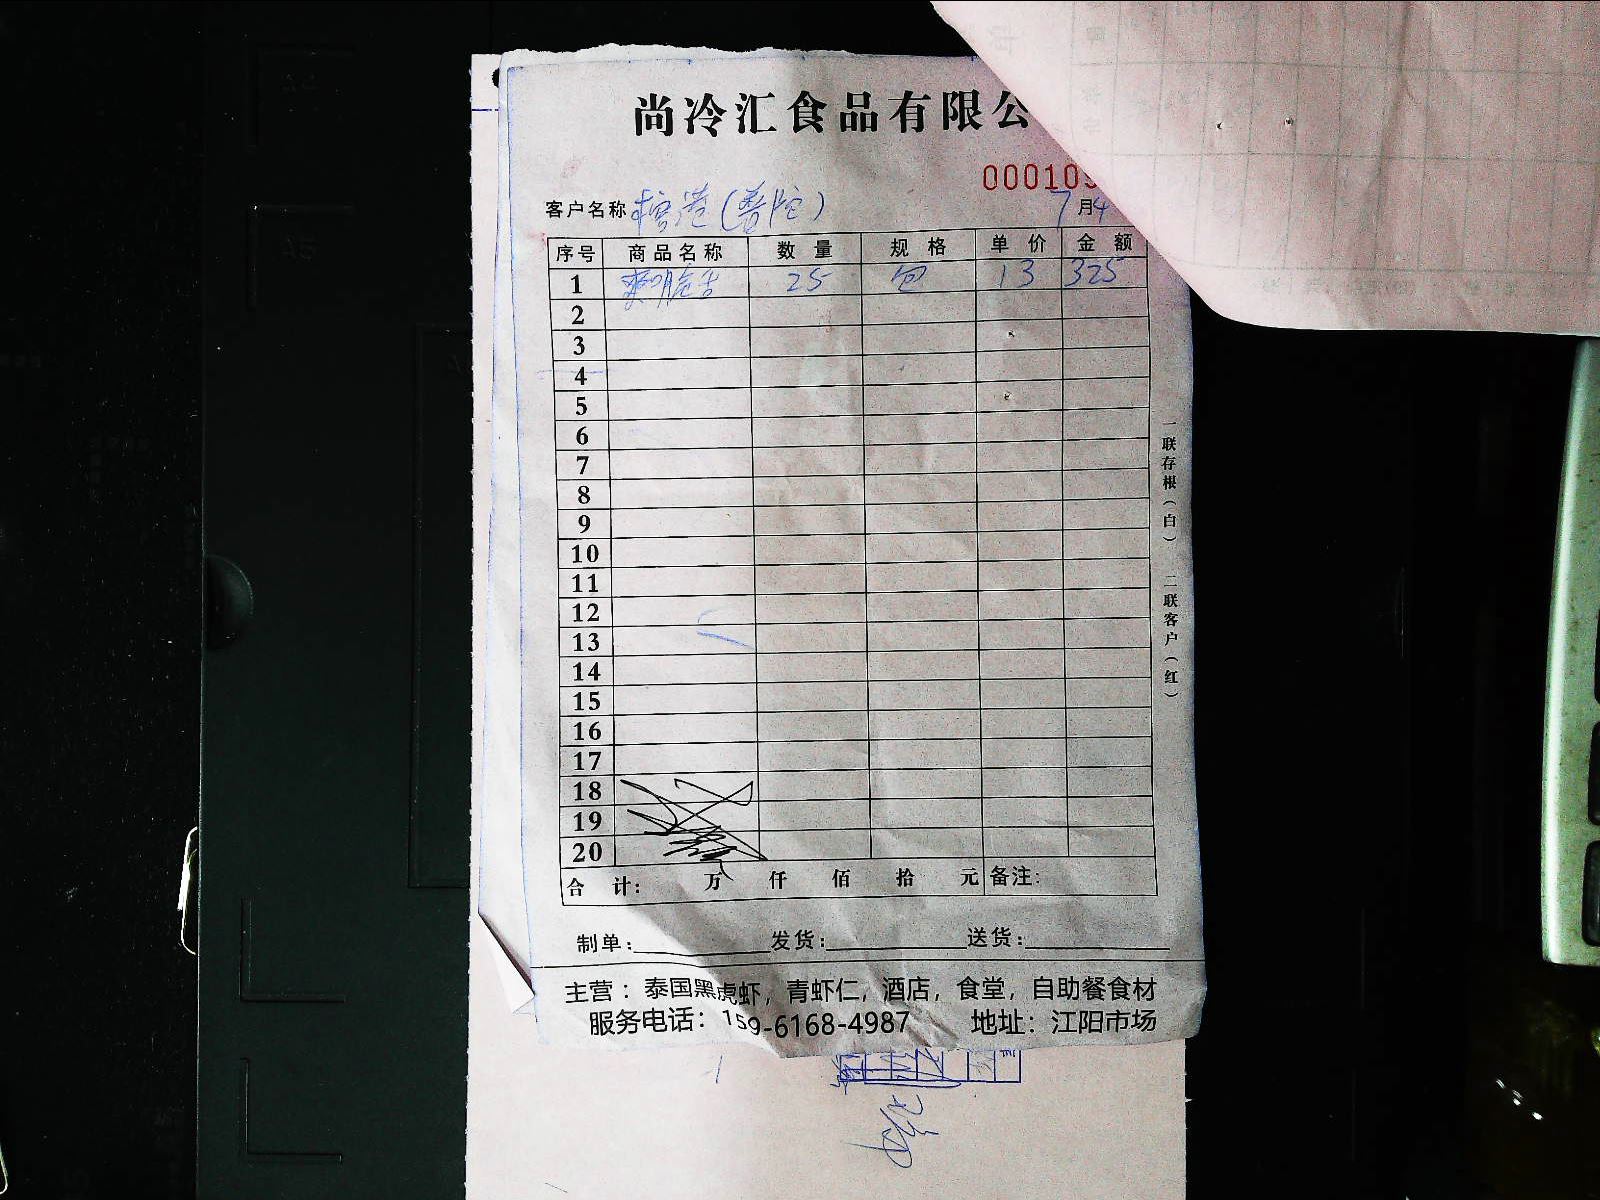 尚冷汇食品有限公
000109
客户名称 (普陀) 7月4
序号 商品名称 数量 规格 单价 金额
1 25 包 13 325
2
3
4
5
6
7
8
9
10
11
12
13
14
15
16
17
18
19
20
合计: 万 仟 佰 拾 元 备注:
一联存根(白) 二联客户(红)
制单: 发货: 送货:
主营：泰国黑虎虾，青虾仁，酒店，食堂，自助餐食材
服务电话：159-6168-4987 地址：江阳市场